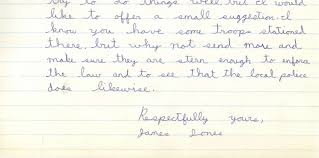 try to do things well but I would
like to offer a small suggestion. I
know you have some troops stationed
there, but why not send more and
make sure they are stern enough to enforce
the law and to see that the local police
does likewise.
Respectfully yours,
Janes Jones